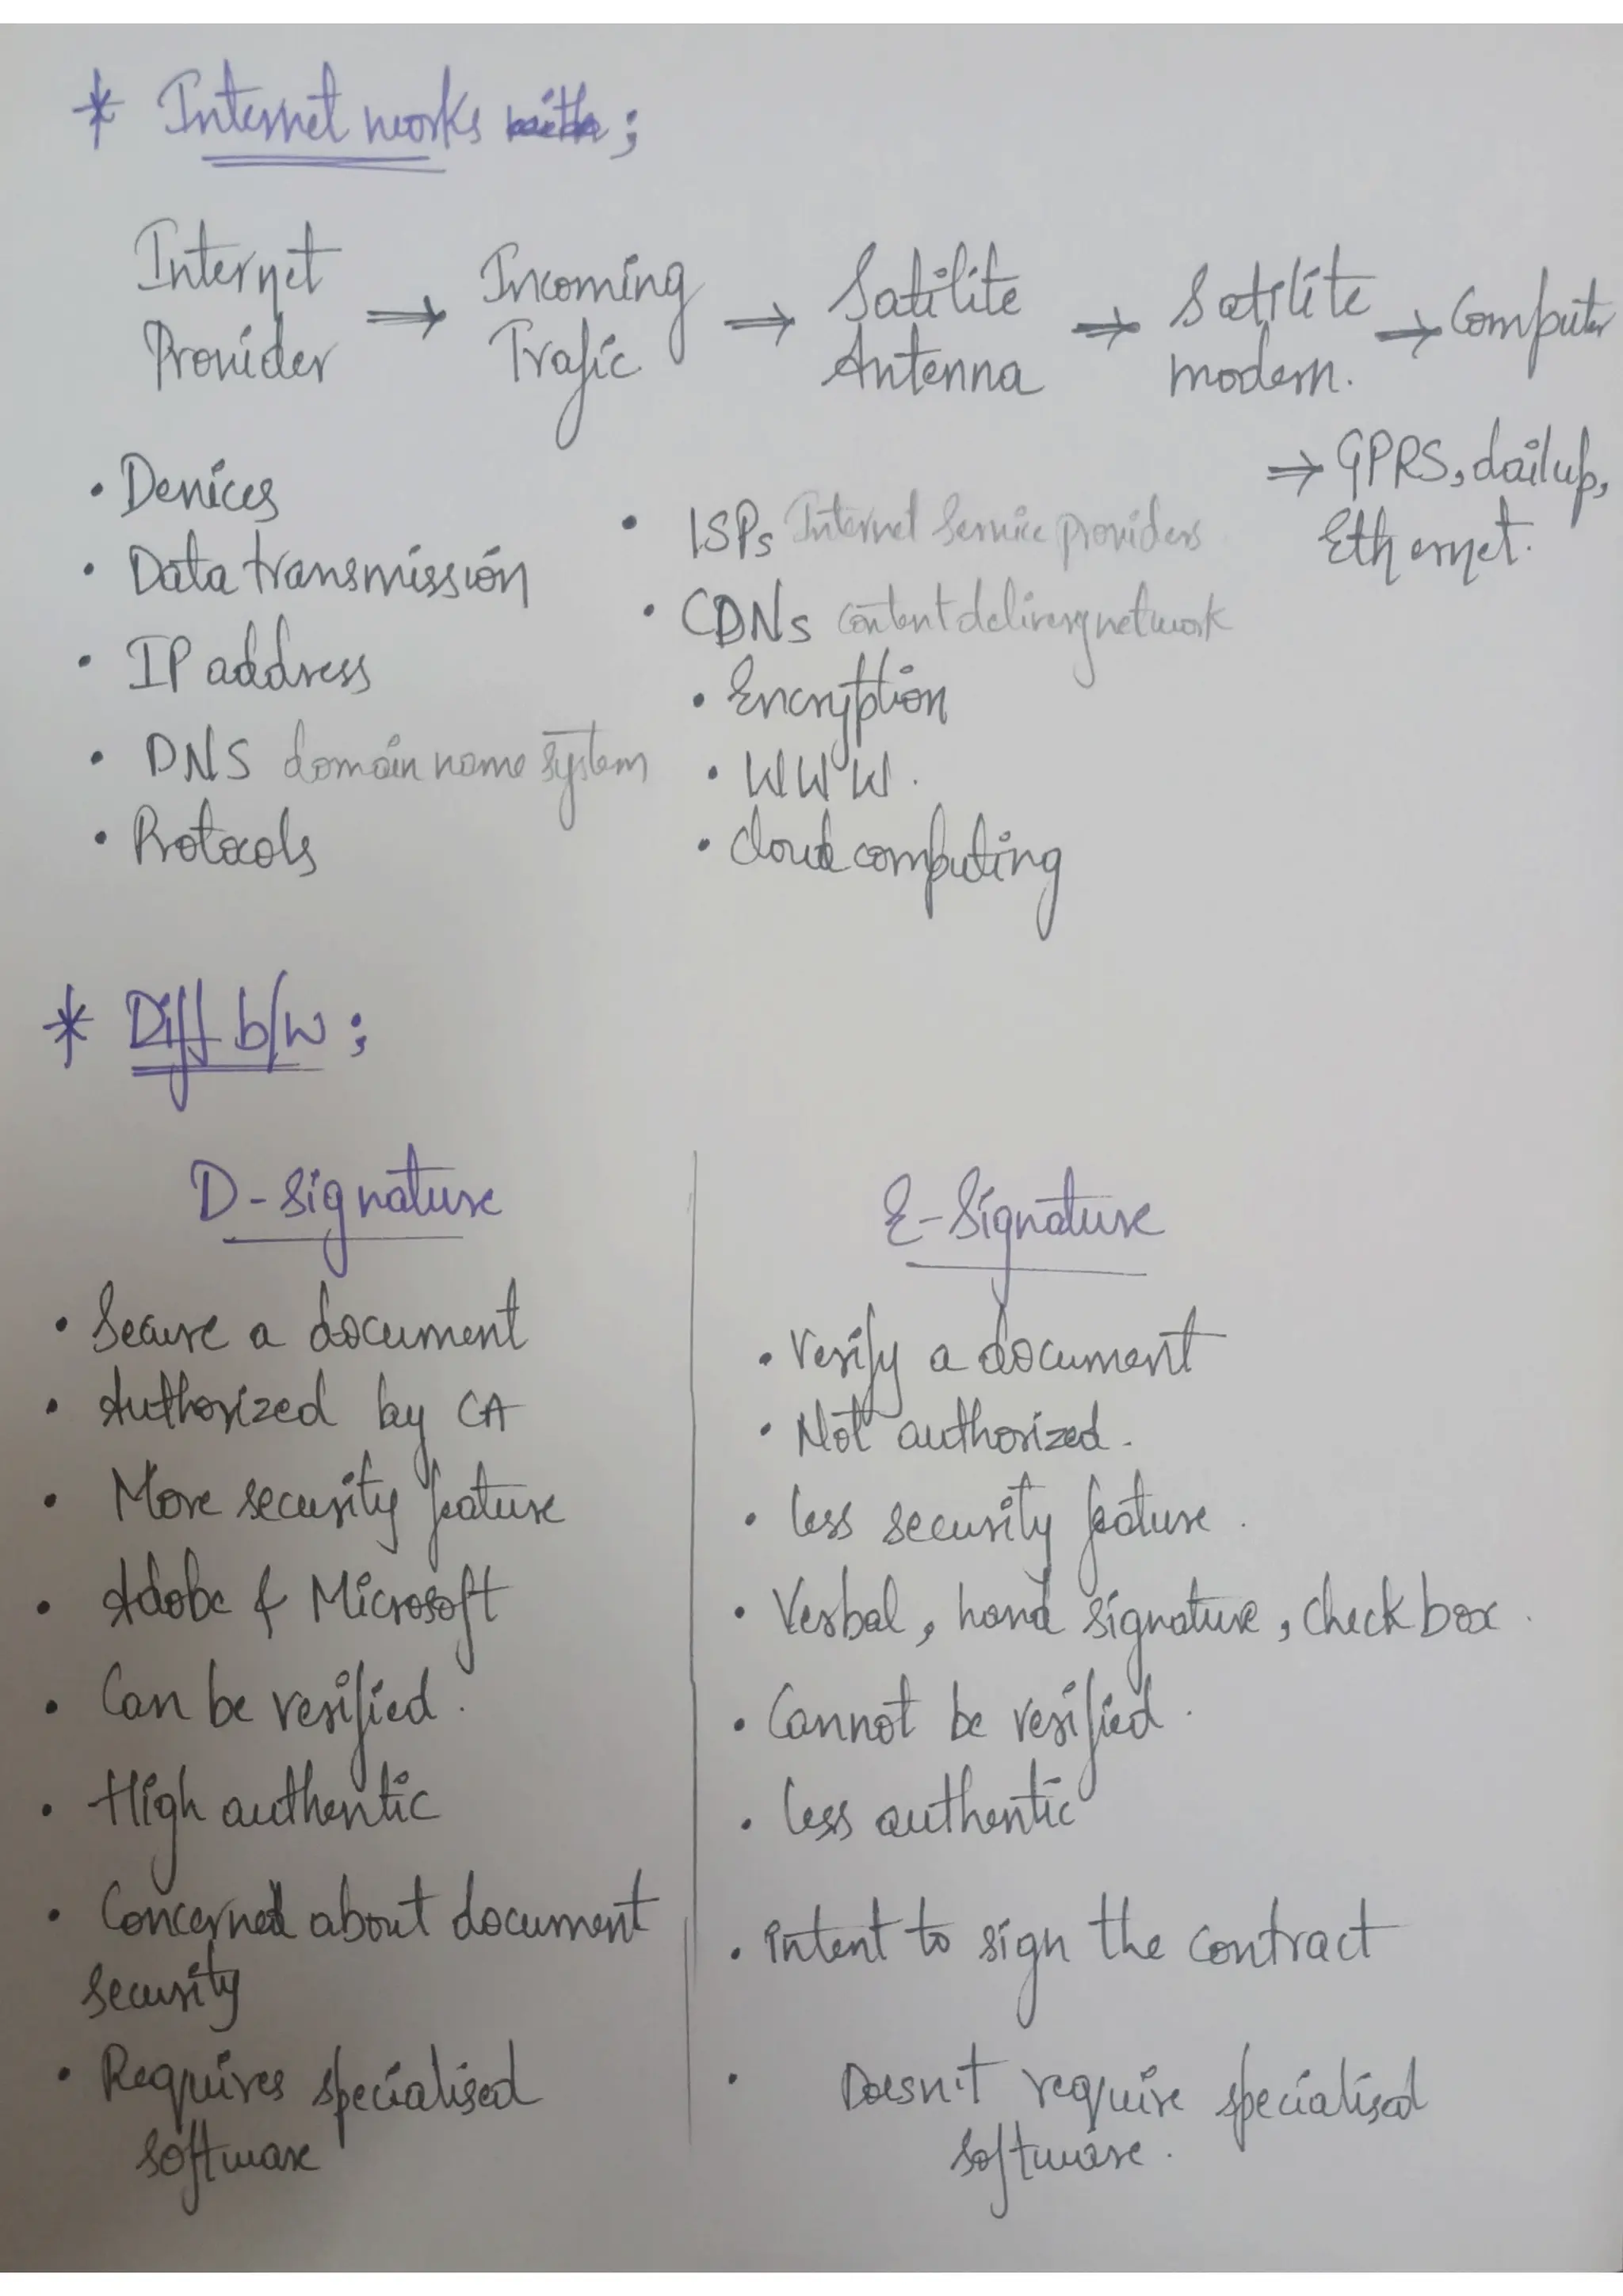 * Internet works with ;
Internet Provider ⇒ Incoming Trafic ⇒ Satilite Antenna ⇒ Satilite modem. ⇒ Computer
⇒ GPRS, dailup, Ethernet.
• Devices
• Data transmission
• IP address
• DNS domain name system
• Protocols
• ISPs Internet Service providers
• CDNs Content delivery network
• Encryption
• WWW.
• Cloud computing
* Diff b/w ;
D-Signature
• Secure a document
• Authorized by CA
• More security feature
• Adobe & Microsoft
• Can be verified.
• High authentic
• Concerned about document
security
• Requires specialised
software
E-Signature
• Verify a document
• Not authorized.
• less security feature.
• Verbal, hand signature, check box.
• Cannot be verified.
• less authentic
• intent to sign the contract
• Doesn't require specialised
software.